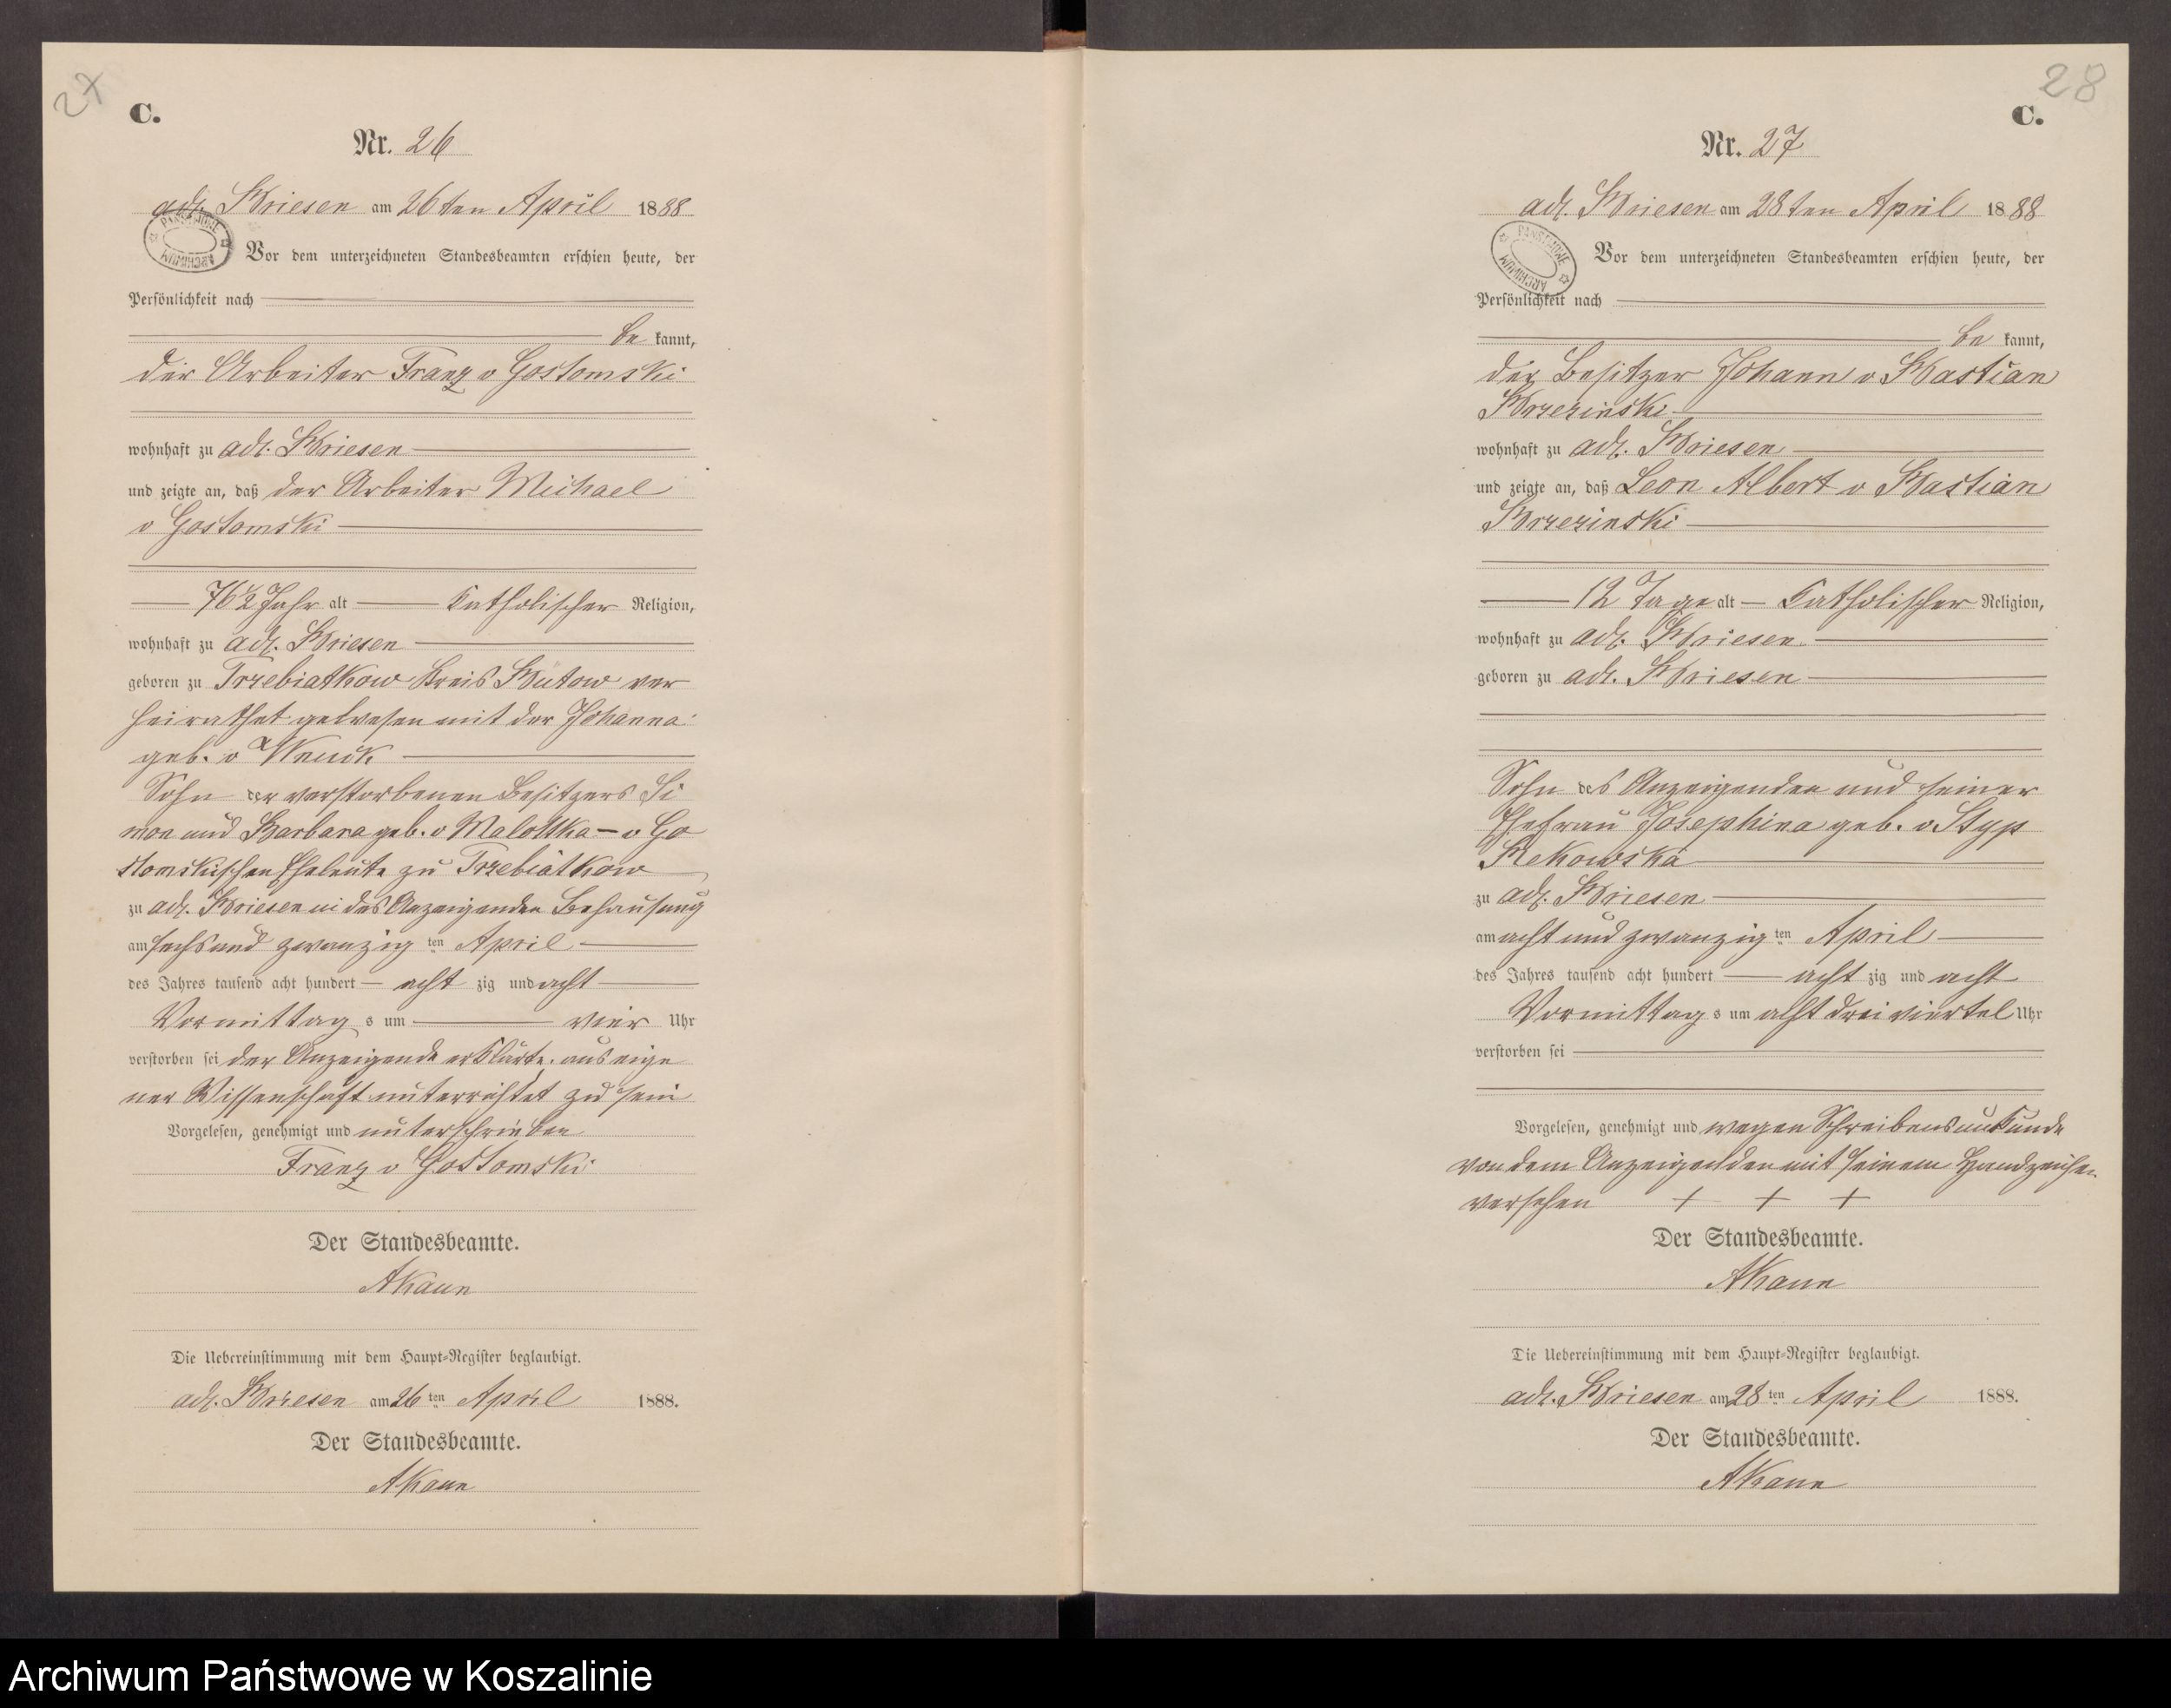 27
C.
Nr. 26
adl. Briesen am 26ten April 1888
Vor dem unterzeichneten Standesbeamten erschien heute, der
Persönlichkeit nach
be kannt,
der Arbeiter Franz v Gostomski
wohnhaft zu adl. Briesen
und zeigte an, daß der Arbeiter Michael
v Gostomski
76 1/2 Jahr alt Katholischer Religion,
wohnhaft zu adl. Briesen
geboren zu Trzebiatkow Kreis Bütow ver
heirathet gewesen mit der Johanna
geb. v
Sohn der verstorbenen Besitzers Si
mon und Barbara geb. v Malottka – v Go
stomskischen Eheleute zu Trzebiatkow
zu adl. Briesen in des Anzeigenden Behausung
am sechsund zwanzig ten April
des Jahres tausend acht hundert acht zig und acht
Vormittag s um vier Uhr
verstorben sei der Anzeigende erklärte, aus eige
ner Wissenschaft unterrichtet zu sein
Vorgelesen, genehmigt und unterschrieben
Franz v Gostomski
Der Standesbeamte.
AKaun
Die Uebereinstimmung mit dem Haupt-Register beglaubigt.
adl. Briesen am 26 ten April 1888.
Der Standesbeamte.
AKaun
28
C.
Nr. 27
adl. Briesen am 28ten April 1888
PANSTWOWE ARCHIWUM
Vor dem unterzeichneten Standesbeamten erschien heute, der
Persönlichkeit nach
be kannt,
der Besitzer Johann v Bastian
Brzezinski
wohnhaft zu adl. Briesen
und zeigte an, daß Leon Albert v Bastian
Brzezinski
12 Tage alt – Katholischer Religion,
wohnhaft zu adl. Briesen
geboren zu adl. Briesen
Sohn des Anzeigenden und seiner
Ehefrau Josephina geb. v Styp
Rekowska
zu adl. Briesen
am acht und zwanzig ten April
des Jahres tausend acht hundert acht zig und acht
Vormittag s um acht drei viertel Uhr
verstorben sei
Vorgelesen, genehmigt und wegen Schreibensunkunde
von dem Anzeigenden mit seinem Handzeichen
versehen + + +
Der Standesbeamte.
AKaun
Die Uebereinstimmung mit dem Haupt-Register beglaubigt.
adl. Briesen am 28 ten April 1888.
Der Standesbeamte.
AKaun
Archiwum Państwowe w Koszalinie